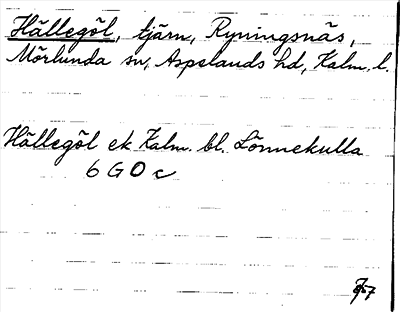 Hällegöl, tjärn, Ryningsnäs,
Mörlunda sn, Aspelands hd, Kalm. l.
Hällegöl ek Kalm. bl. Lönnekulla
6 G 0 c